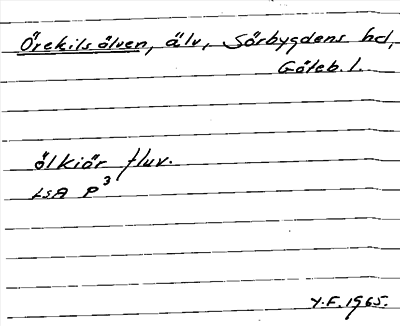 Örekilsälven, älv, Sörbygdens hd,
Göteb. l.
ölkiär fluv.
LSA P³
Y.F. 1965.